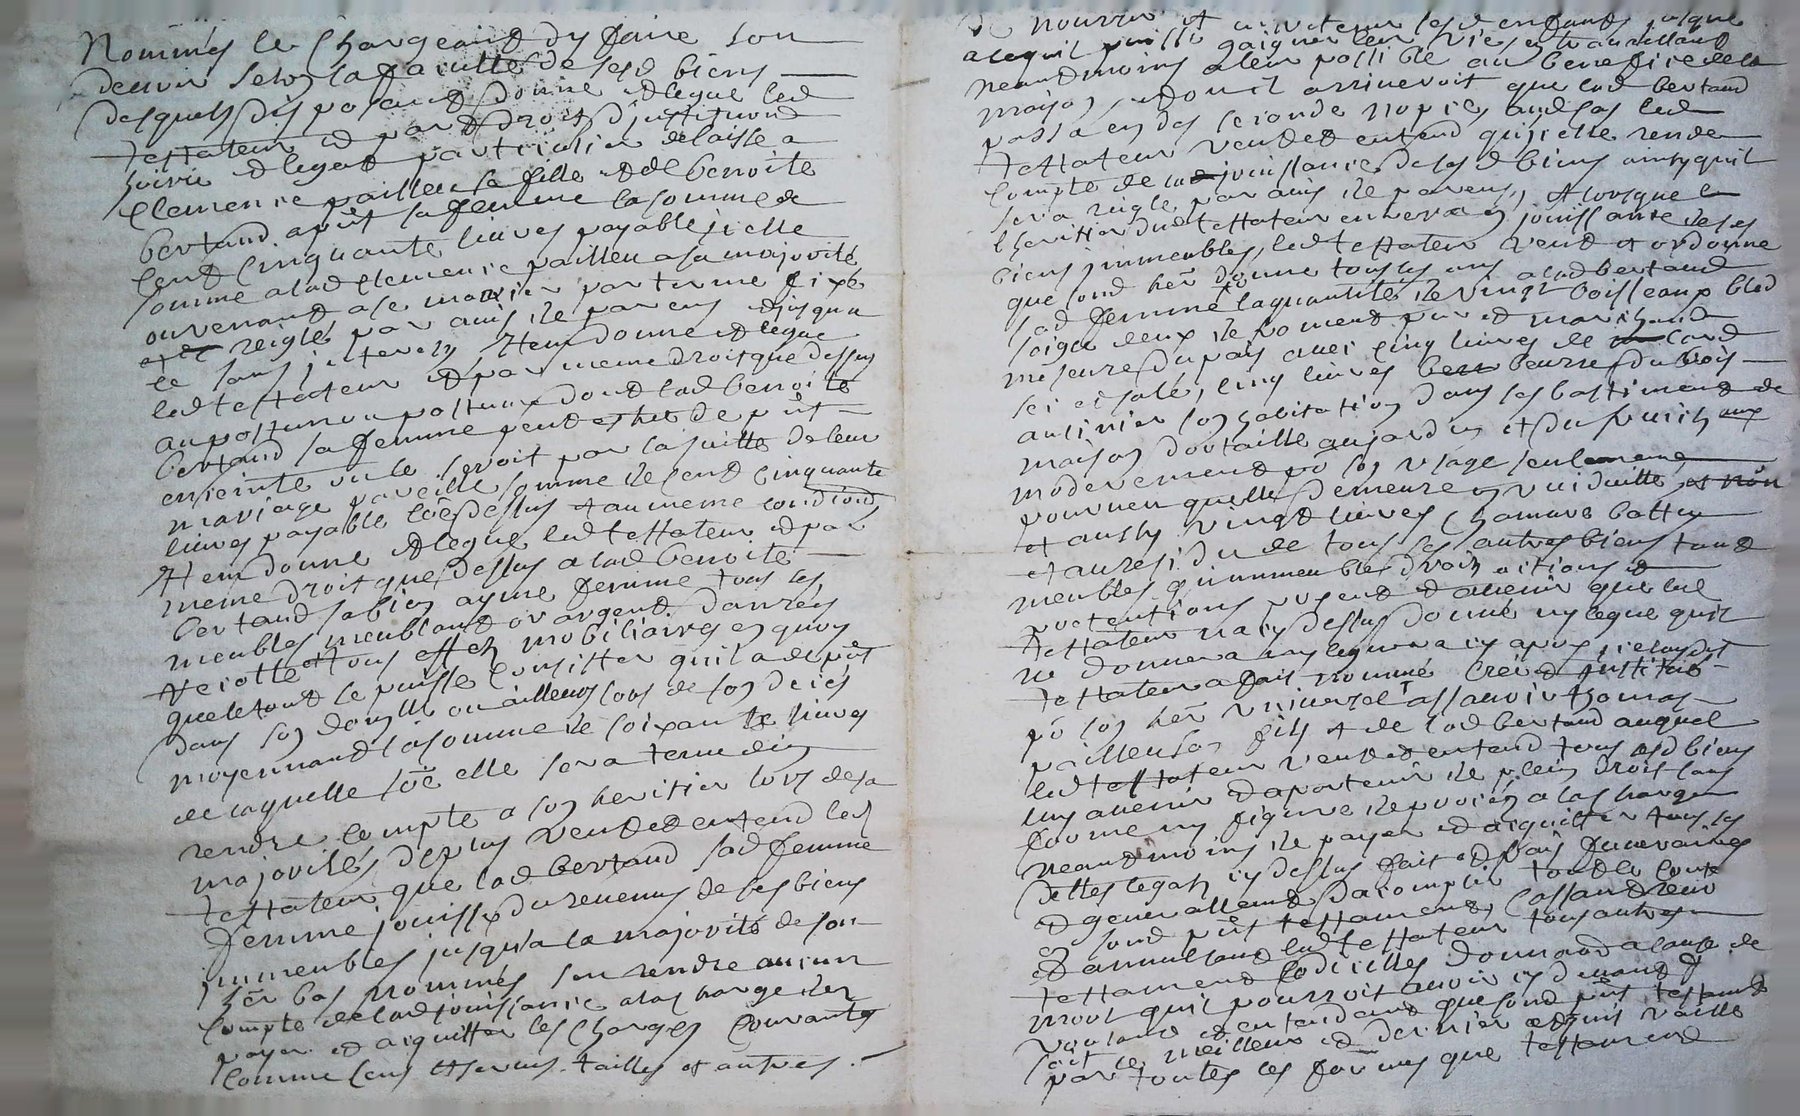 Nommés le Chargeand dy faire son
devoir selon la faculté de sesd biens
desquels disposand donne et legue led
testateur et par droit d'jnstitu͞on
hoirie et legat particulier delaisse a
Clemence pailleu sa fille et de benoite
bertand apñt sa femme la somme de
Cent Cinquante livres payable jcelle
somme a lad Clemence pailleu a sa majorité
ou venand a se marier par terme fixé
et reiglé par avis de parens et jusqua
ce sans jnterets Jtem donne et legue
led testateur et par meme droit que dessus
au postume ou postumes dont lad benoite
bertand sa femme peut estre de pñt
enceinte ou le seroit par la suitte de leur
mariage pareille somme de cend cinquante
livres payable co͞e dessus et au meme condi͞ons
Jtem donne et legue led testateur et par
meme droit que dessus a lad benoite
bertand sa bien aymé femme tous ses
meubles meubland or argend danrées
recolte et tous effets mobiliaires en quoy
que le tout se puisse Consister quil a de pñt
dans son domylle ou ailleurs lors de son deces
moyennand la somme de soixante livres
de laquelle so͞e elle sera tenue den
rendre Compte a son heritier lors de sa
majorité, de plus veut et entend led
testateur que lad bertand sad femme
femme jouisse du revenus de ses biens
jmmeubles jusqu'a la majorité de son
her͞ bas nommés sans rendre aucun
Compte de lad jouissance a la charge den
payer et aiquitter les Charges Courantes
Comme Cens et servis tailles et autres.
de nourrir et entretenir sesd enfants jusque
a ce quil puisse gaigner leur vie en travailland
neandmoins a leur possible au benefice de la
maison, et ou il arriveroit que lad bertand
passa en des seconde nopces aud cas led
testateur veut et entend quicelle rende
Compte de lad jouissance de sesd biens ainsy quil
sera reiglé par avis de parens, et lorsque l
heritier dud testateur entrera en jouissance de ses
biens jmmeubles, led testateur veut et ordonne
que sond her͞ donne tous les ans a lad bertand
sad femme la quantité de vingt boisseaux bled
soigle deux de froment pur et marchand
mesure du pais avec cinq livres de lard
sec et salé, cinq livres beurre, du bois
antinier son habitation dans les bastiments de
maison dortaille au jardin et du fruits aux
moderement po͞ son usage seulement
pourveu quelle demeure en viduitté et non
et aussy vingt livres Chanvre battu
et au residu de tous ses autres biens tand
meubles qu'immeubles droits actions et
pretentions present et avenir que led
testateur na cy dessus donné ny legué quil
ne donnera ny leguera cy apres jceluy dt
testateur a fait nommé creé et jnstitué
po͞ son her͞ universel assavoir thomas
pailleu son fils et de lad bertand auquel
led testateur veut et entend tous sesd biens
luy avenir et apartenir de plein droit sans
forme ny figure de proces a la charge
neandmoins de payer et aiquitter tous ses
dettes legats cy dessus fait et frais funeraires
et generallement dacomplir tout le conte
en sond pñt testament, Cassand revo
et annulland led testateur tous autres
testament Codicilles donna͞on a cause de
mort quil pourroit avoir cy devand f
vouland et entendand que sond pñt testament
soit le meilleur et dernier et quil vaille
par toutes les formes que testament